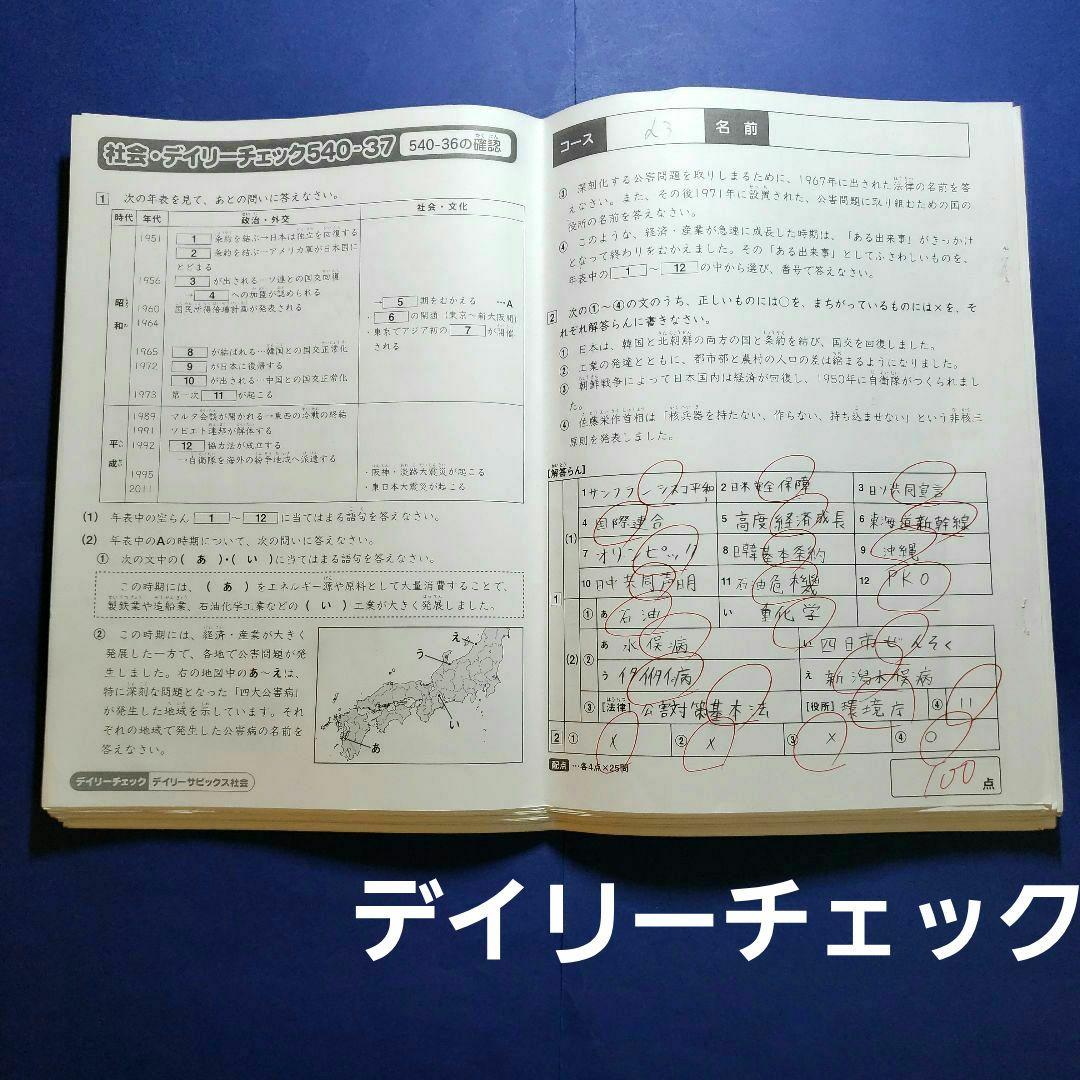 社会・デイリーチェック540-37 540-36の確認
1 次の年表を見て、あとの問いに答えなさい。
時代 年代 政治・外交 社会・文化
昭和
1951 1 条約を結ぶ→日本は独立を回復する
2 条約を結ぶ→アメリカ軍が日本国に
とどまる
1956 3 が出される…ソ連との国交回復
→ 4 への加盟が認められる
1960 国民所得倍増計画が発表される
→ 5 期をむかえる …A
1964 ・ 6 の開通（東京〜新大阪間）
・東京でアジア初の 7 が開催
される
1965 8 が結ばれる…韓国との国交正常化
1972 9 が日本に復帰する
10 が出される…中国との国交正常化
1973 第一次 11 が起こる
平成
1989 マルタ会談が開かれる→東西の冷戦の終結
1991 ソビエト連邦が解体する
1992 12 協力法が成立する
→自衛隊を海外の紛争地域へ派遣する
1995 ・阪神・淡路大震災が起こる
2011 ・東日本大震災が起こる
(1) 年表中の空らん 1 〜 12 に当てはまる語句を答えなさい。
(2) 年表中のAの時期について、次の問いに答えなさい。
① 次の文中の（ あ ）・（ い ）に当てはまる語句を答えなさい。
この時期には、（ あ ）をエネルギー源や原料として大量消費することで、
製鉄業や造船業、石油化学工業などの（ い ）工業が大きく発展しました。
② この時期には、経済・産業が大きく
発展した一方で、各地で公害問題が発
生しました。右の地図中のあ〜えは、
特に深刻な問題となった「四大公害病」
が発生した地域を示しています。それ
ぞれの地域で発生した公害病の名前を
答えなさい。
え
う
い
あ
デイリーチェック デイリーサピックス社会
コース α3 名前
③ 深刻化する公害問題を取りしまるために、1967年に出された法律の名前を答
えなさい。また、その後1971年に設置された、公害問題に取り組むための国の
役所の名前を答えなさい。
④ このような、経済・産業が急速に成長した時期は、「ある出来事」がきっかけ
となって終わりをむかえました。その「ある出来事」としてふさわしいものを、
年表中の 1 〜 12 の中から選び、番号で答えなさい。
2 次の①〜④の文のうち、正しいものには○を、まちがっているものには×を、そ
れぞれ解答らんに書きなさい。
① 日本は、韓国と北朝鮮の両方の国と条約を結び、国交を回復しました。
② 工業の発達とともに、都市部と農村の人口の差は縮まるようになりました。
③ 朝鮮戦争によって日本国内は経済が回復し、1950年に自衛隊がつくられまし
た。
④ 佐藤栄作首相は「核兵器を持たない、作らない、持ち込ませない」という非核三
原則を発表しました。
[解答らん]
1
(1)
1 サンフランシスコ平和 2 日米安全保障 3 日ソ共同宣言
4 国際連合 5 高度経済成長 6 東海道新幹線
7 オリンピック 8 日韓基本条約 9 沖縄
10 日中共同声明 11 石油危機 12 PKO
(2)
① あ 石油 い 重化学
② あ 水俣病 い 四日市ぜんそく
う イタイイタイ病 え 新潟水俣病
③ [法律] 公害対策基本法 [役所] 環境庁 ④ 11
2 ① × ② × ③ × ④ ○
配点 …各4点×25問
100 点
デイリーチェック